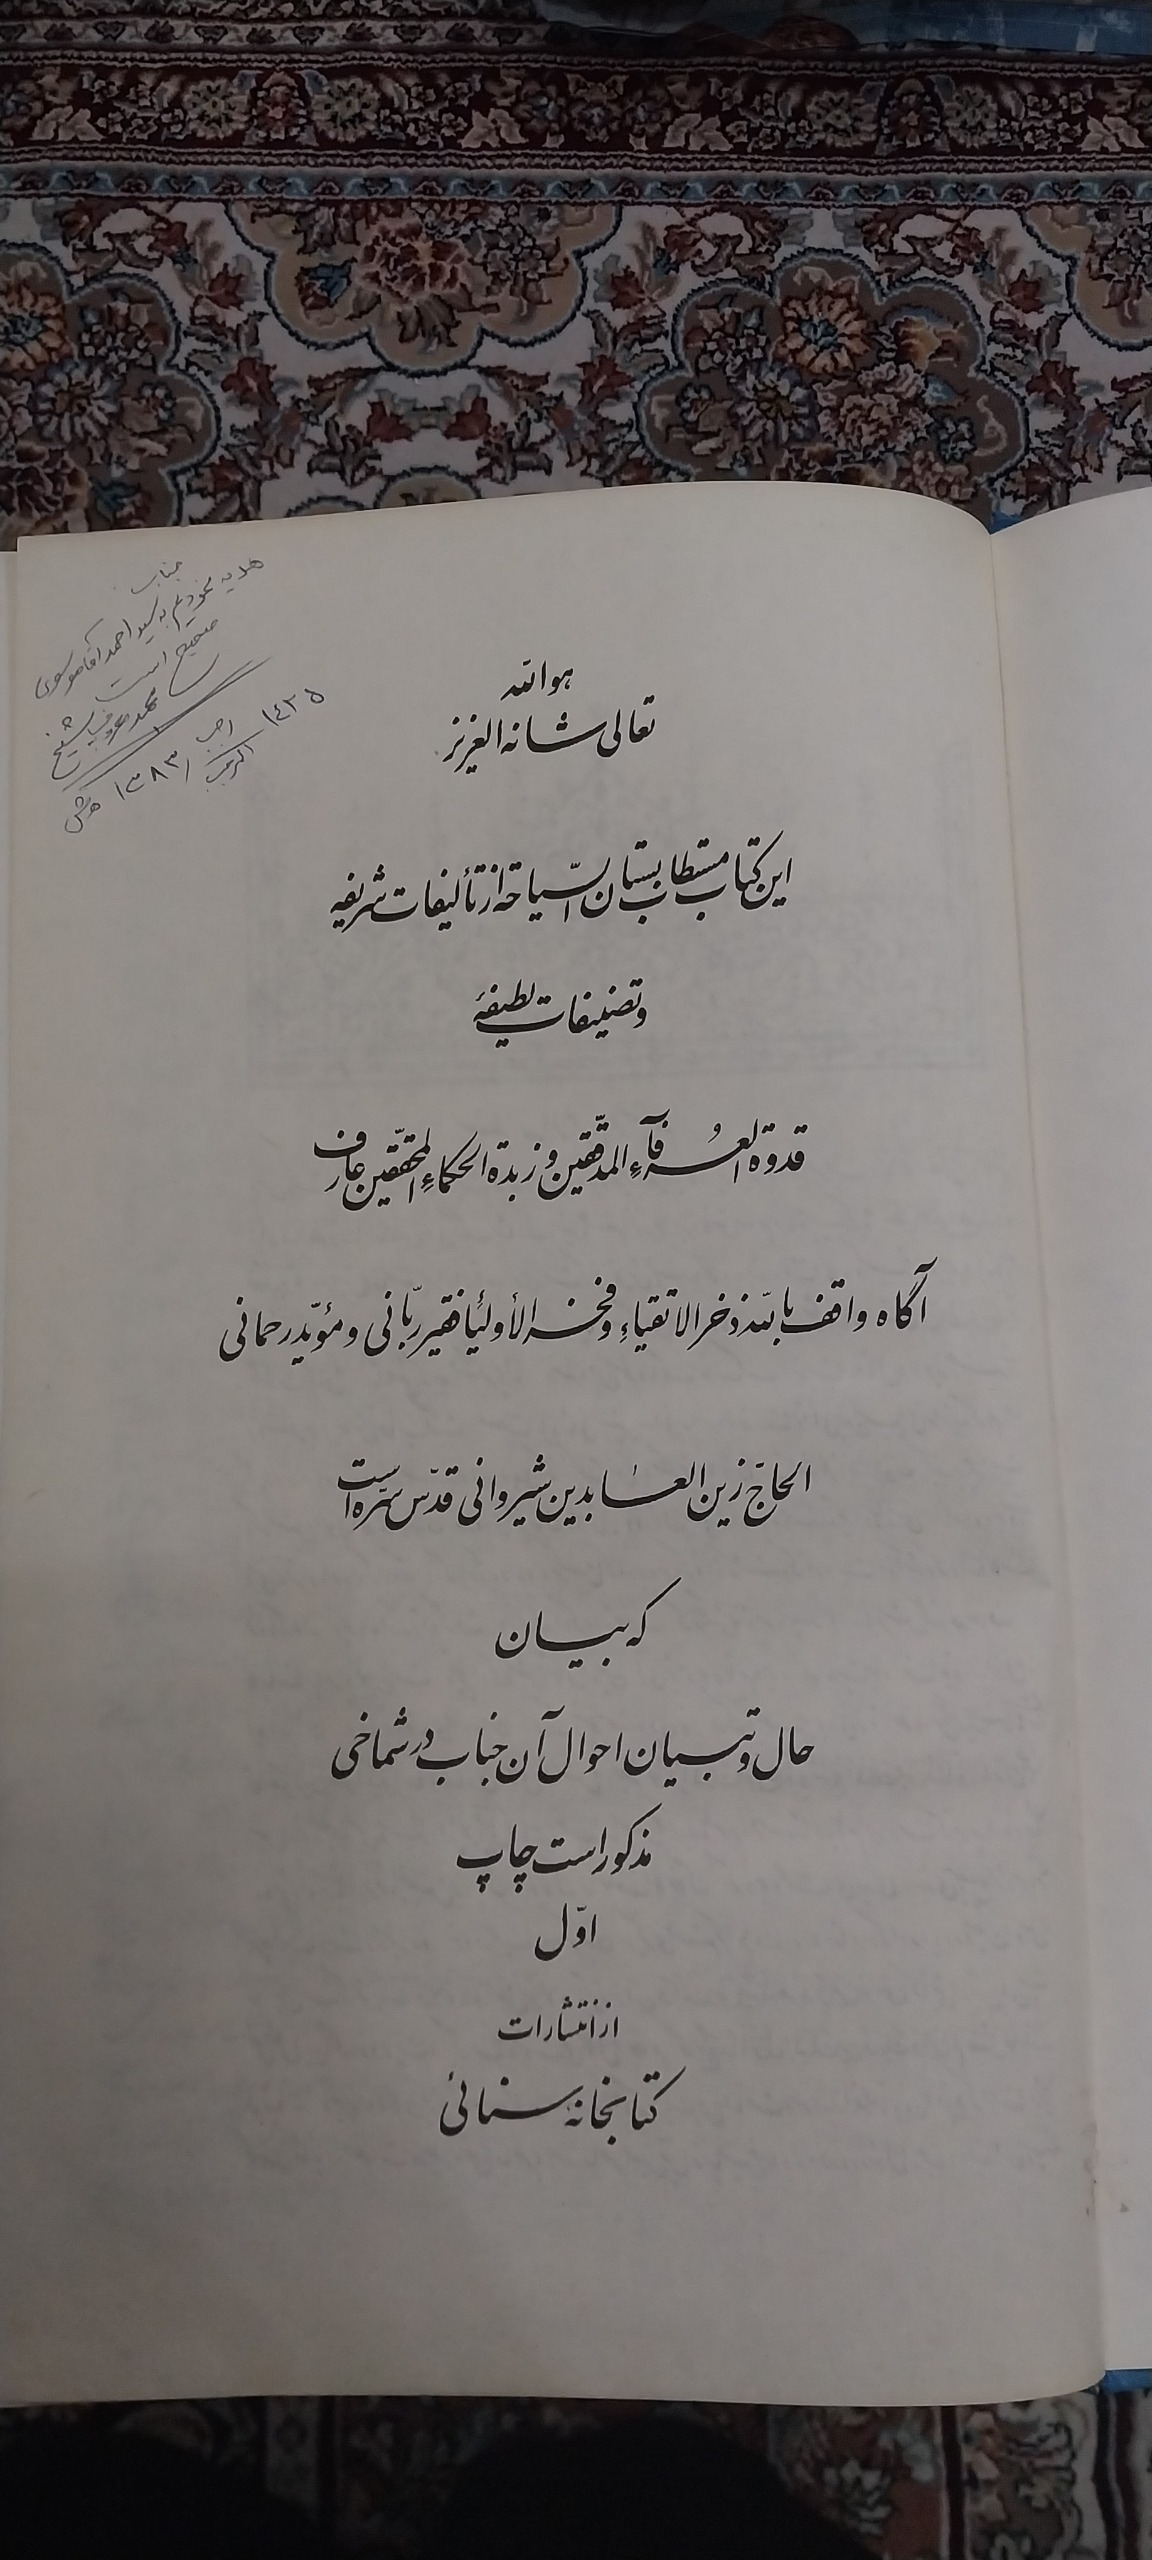 جناب
هدیه نمودیم به سید احمد آقا موسوی
صحیح است
محمد معروف شیخ
۱٤۲۵ رجب
المرجب ۱۳۸۳ هش
هو الله
تعالی شانه العزیز
این کتاب مستطاب بستان السّیاحه از تألیفات شریفه
و تصنیفات لطیفهٔ
قدوة العُرفآءِ المدقّقین و زبدة الحکماءِ المتحقّقین عارف
آگاه واقف بالله ذخر الاتقیاءِ و فخر الأولیاء فقیر ربّانی و مؤیّد رحمانی
الحاجّ زین العابدین شیروانی قدّس سرّه است
که بیان
حال و تبیان احوال آن جناب در شماخی
مذکور است چاپ
اوّل
از انتشارات
کتابخانهٔ سنائی